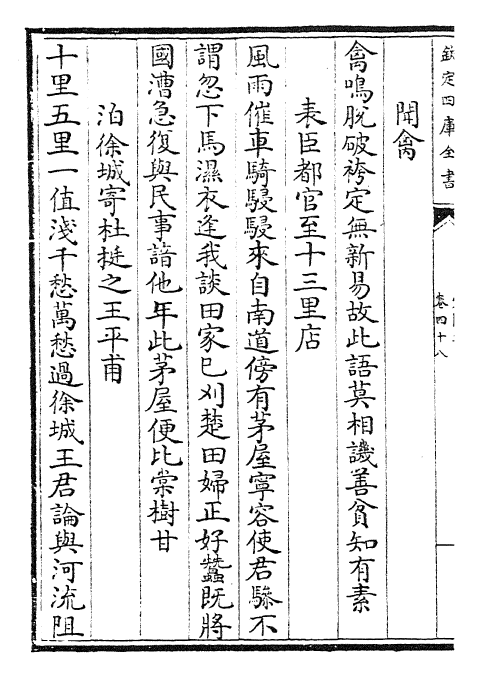 欽定四庫全書
卷四十八
聞禽
禽鳴脫破袴定無新易故此語莫相譏善貧知有素
表臣都官至十三里店
風雨催車騎駸駸來自南道傍有茅屋寧容使君驂不
謂忽下馬濕衣逢我談田家已刈楚田婦正好蠶既將
國漕急復與民事諳他年此茅屋便比棠樹甘
泊徐城寄杜挺之王平甫
十里五里一值淺千愁萬愁過徐城王君論與河流阻